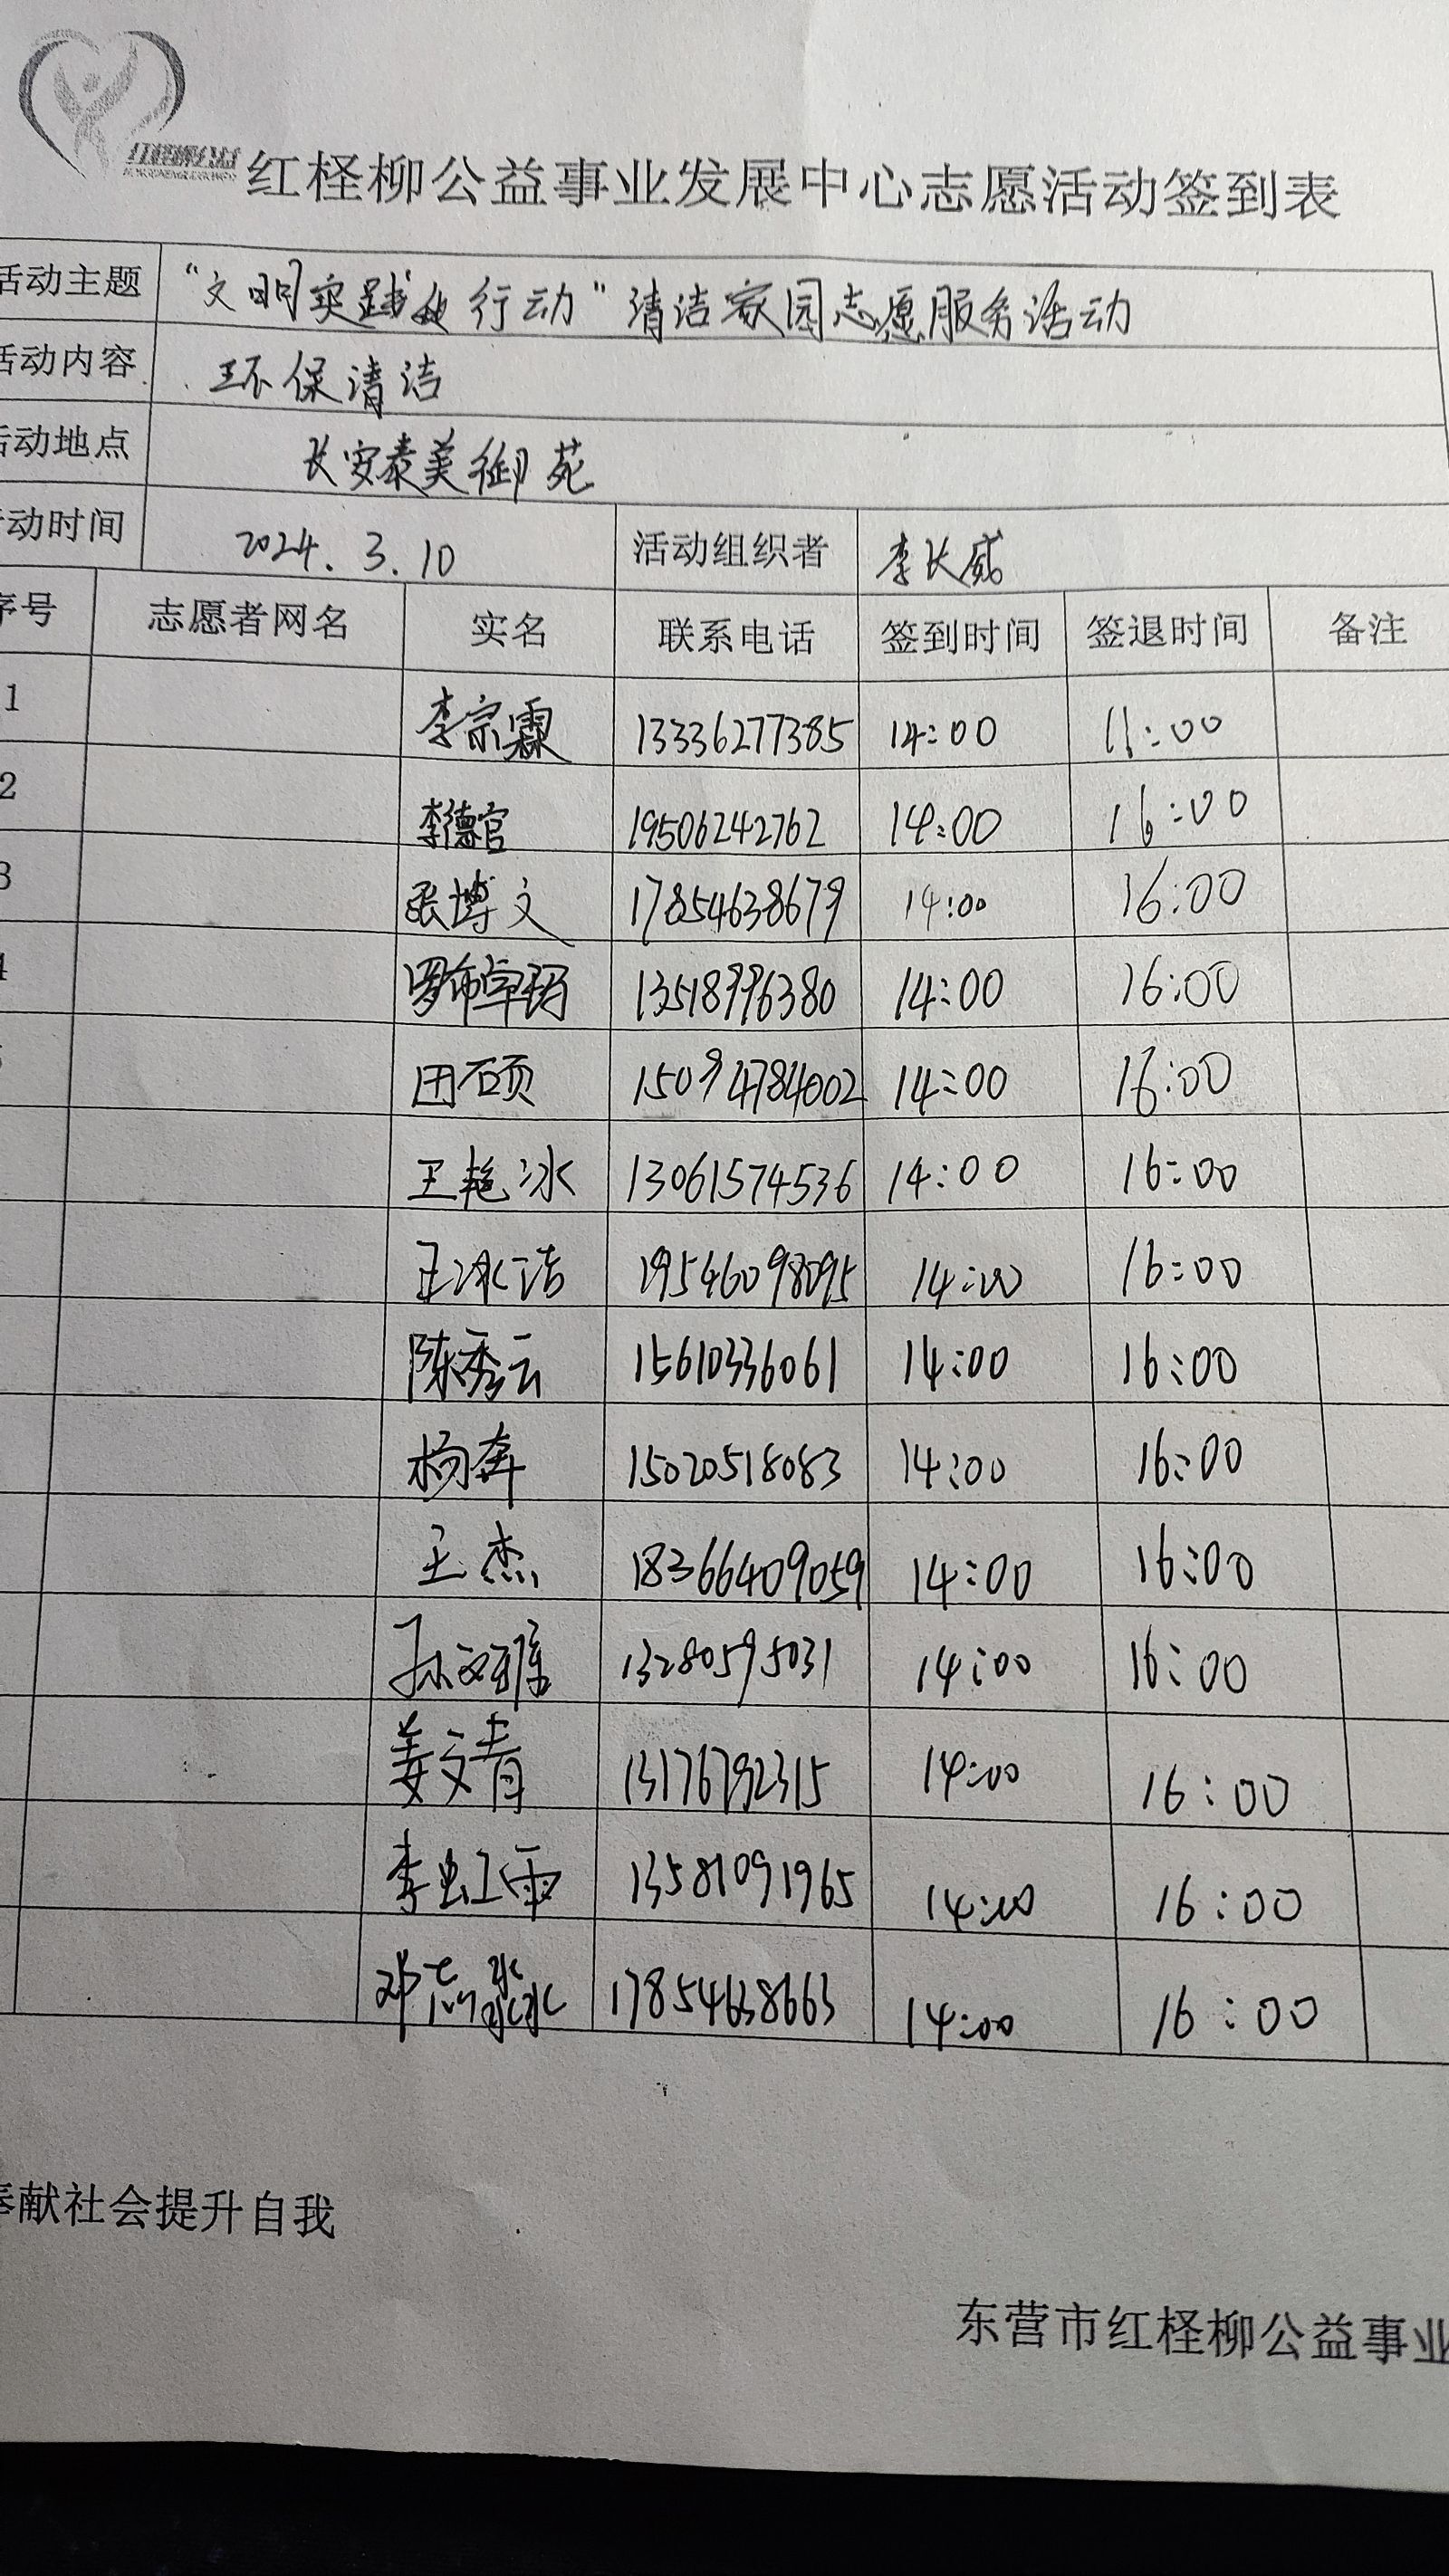 红柽柳公益
红柽柳公益事业发展中心志愿活动签到表
活动主题 “文明实践 行动”清洁家园志愿服务活动
活动内容 环保清洁
活动地点 长安泰美御苑
活动时间 2024.3.10 活动组织者 李长威
序号 志愿者网名 实名 联系电话 签到时间 签退时间 备注
1 李宗霖 13336277385 14:00 16:00
2 李德官 19506242762 14:00 16:00
3 张博文 17854638679 14:00 16:00
4 罗布卓玛 13518996380 14:00 16:00
田硕 15094784002 14:00 16:00
王艳冰 13061574536 14:00 16:00
王冰洁 19546098095 14:00 16:00
陈秀云 15610336061 14:00 16:00
杨奔 15020518083 14:00 16:00
王杰 18366409059 14:00 16:00
孙文雅 13280595031 14:00 16:00
姜文青 13176792315 14:00 16:00
李虹雨 13581091965 14:00 16:00
邓志淼 17854638663 14:00 16:00
奉献社会提升自我
东营市红柽柳公益事业